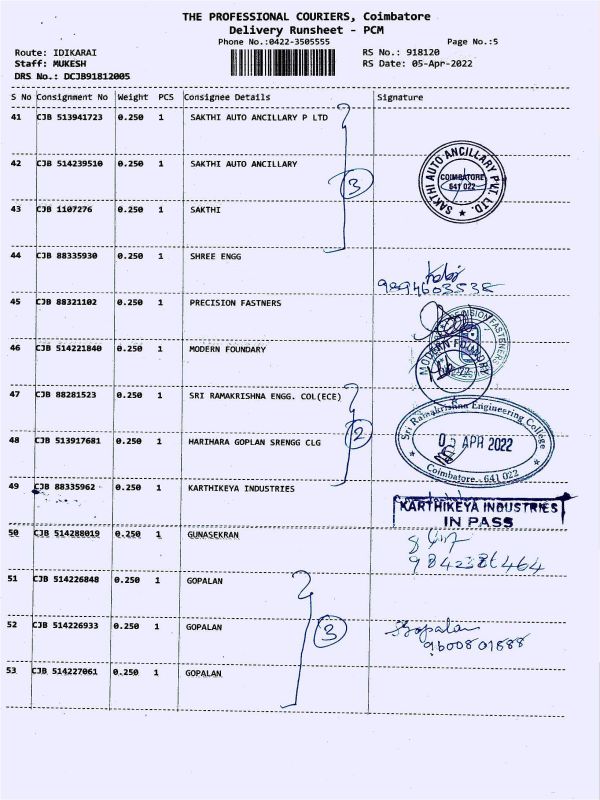 THE PROFESSIONAL COURIERS, Coimbatore
Delivery Runsheet - PCM
Phone No.:0422-3505555 Page No.:5
Route: IDIKARAI RS No.: 918120
Staff: MUKESH RS Date: 05-Apr-2022
DRS No.: DCJB91812005
S No Consignment No Weight PCS Consignee Details Signature
41 CJB 513941723 0.250 1 SAKTHI AUTO ANCILLARY P LTD
42 CJB 514239510 0.250 1 SAKTHI AUTO ANCILLARY
3
SAKTHI AUTO ANCILLARY PVT. LTD.
COIMBATORE
641 022
43 CJB 1107276 0.250 1 SAKTHI
44 CJB 88335930 0.250 1 SHREE ENGG
9894603538
45 CJB 88321102 0.250 1 PRECISION FASTNERS
PRECISION FASTENERS
46 CJB 514221840 0.250 1 MODERN FOUNDARY
MODERN FOUNDRY
47 CJB 88281523 0.250 1 SRI RAMAKRISHNA ENGG. COL(ECE)
Sri Ramakrishna Engineering College
48 CJB 513917681 0.250 1 HARIHARA GOPLAN SRENGG CLG
2
05 APR 2022
Coimbatore - 641 022
49 CJB 88335962 0.250 1 KARTHIKEYA INDUSTRIES
KARTHIKEYA INDUSTRIES
IN PASS
50 CJB 514288019 0.250 1 GUNASEKRAN
9842386464
51 CJB 514226848 0.250 1 GOPALAN
52 CJB 514226933 0.250 1 GOPALAN
3
Gopalan
9600801688
53 CJB 514227061 0.250 1 GOPALAN